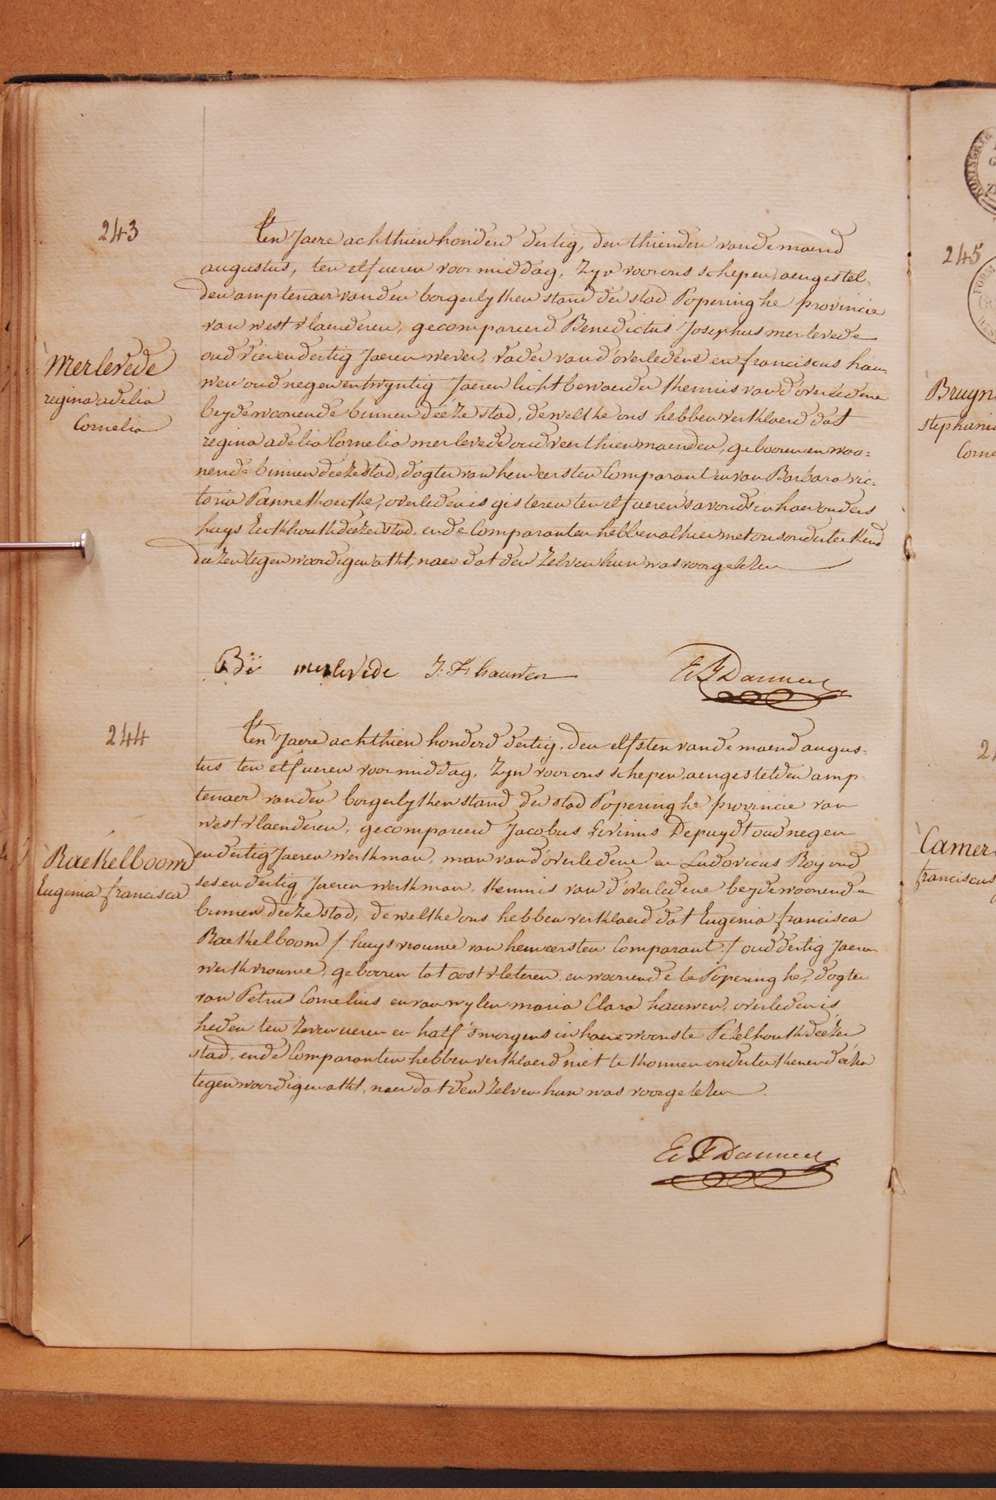 243
Merlevede
regina adelia
Cornelia
Ten Jaere achthien honderd dertig, den thienden van de maend
augustus, ten elf ueren voormiddag, Zyn voor ons schepen, aengestel-
den amptenaer van den borgerlyken stand der stad Poperinghe provincie
van westvlaenderen, gecompareerd Benedictus Josephus merlevede
oud vier en dertig Jaeren wever, vader van d'overledene en franciscus hau-
wen oud negen en twyntig Jaeren lichtbewaerder kennis van d'overledene
beyde woonende binnen deeze stad, dewelke ons hebben verklaerd dat
regina adelia Cornelia merlevede oud veerthien maenden, gebooren en woo-
nende binnen deeze stad, dogter van hem eersten Comparant en van Barbara vic-
toria Pannekoucke, overleden is gisteren ten elf ueren s'avonds in haer ouders
huys Eeckhoutk deezer stad, ende Comparanten hebben alhier met ons onderteekend
deeze tegenwoordige akt, naer dat den zelven hun was voorgelezen
Bi merlevede J. F. hauwen
244
Raekelboom
Eugenia francisca
Ten Jaere achthien honderd dertig, den elfsten van de maend augus-
tus ten elf ueren voormiddag, Zyn voor ons schepen, aengestelden amp-
tenaer van den borgerlyken stand der stad Poperinghe provincie van
westvlaenderen, gecompareerd Jacobus Livinus Depuydt oud negen
en dertig Jaeren werkman, man van d'overledene en Ludovicus Roy oud
sesendertig Jaeren werkman, kennis van d'overledene beyde woonende
binnen deeze stad, dewelke ons hebben verklaerd dat Eugenia francisca
Raekelboom / huysvrouwe van hem eersten Comparant / oud dertig Jaeren
werkvrouwe, gebooren tot oostvleteren, en woonende te Poperinghe, dogter
van Petrus Cornelius en van wylen maria Clara hauwen, overleden is
heden ten zeven ueren en half s'morgens in haere woonste Pezelhoutk deezer
stad, ende Comparanten hebben verklaerd niet te konnen onderteekenen deeze
tegenwoordige akt, naer dat den zelven hun was voorgelezen.
245
Bruyn
stephanie
Corne
Camer
franciscus